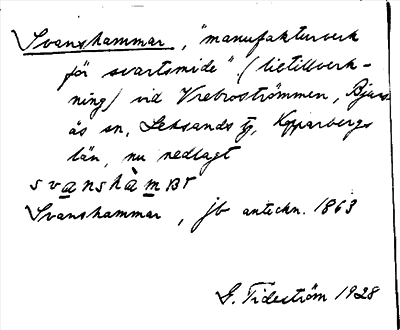 Svanshammar, "manufakturverk
för svartsmide" (lietillverk-
ning) vid Vrebroströmmen, Bjurs-
ås sn, Leksands tg, Kopparbergs
län, nu nedlagt
svanshàmar
Svanshammar, jb anteckn. 1863
G. Tideström 1928